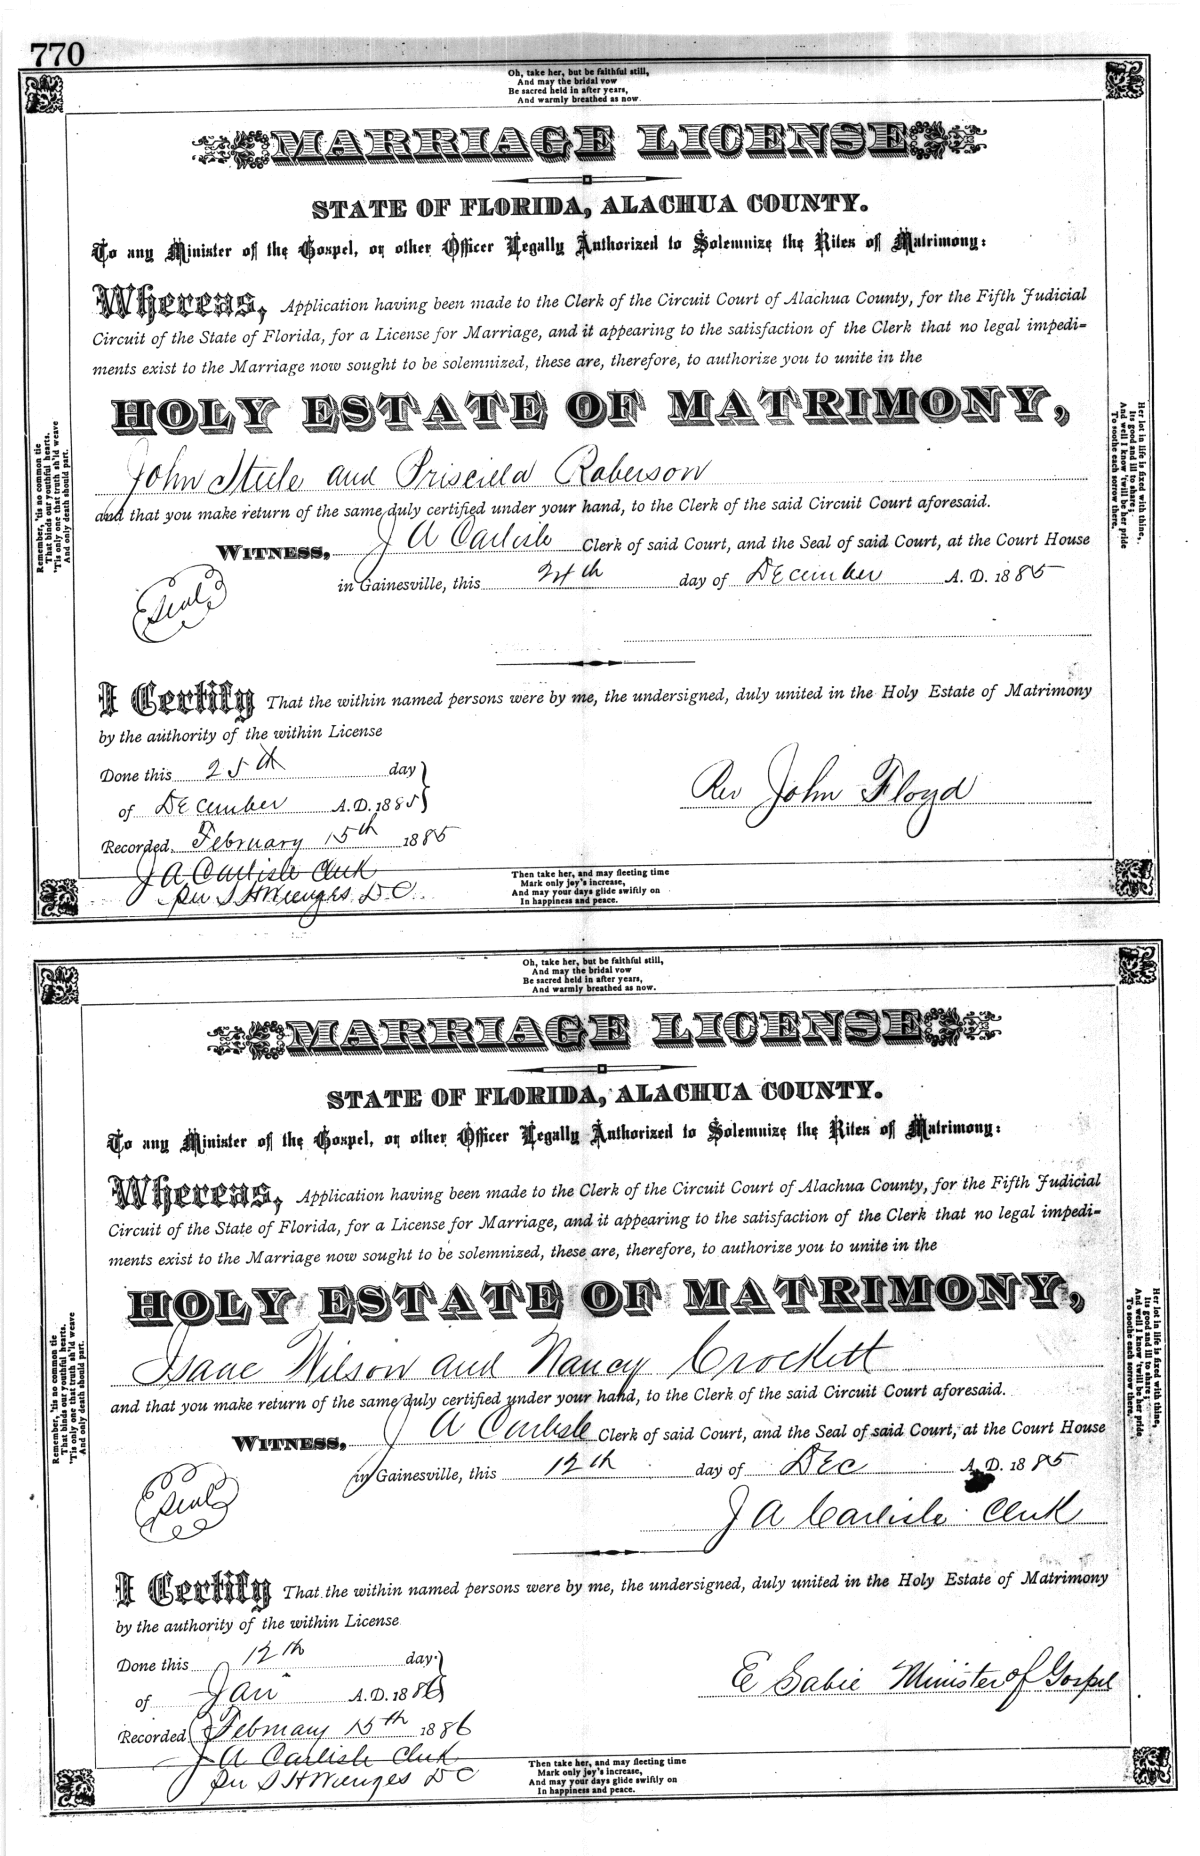 770
Oh, take her, but be faithful still,
And may the bridal vow
Be sacred held in after years,
And warmly breathed as now.
MARRIAGE LICENSE
STATE OF FLORIDA, ALACHUA COUNTY.
To any Minister of the Gospel, or other Officer Legally Authorized to Solemnize the Rites of Matrimony:
Whereas, Application having been made to the Clerk of the Circuit Court of Alachua County, for the Fifth Judicial
Circuit of the State of Florida, for a License for Marriage, and it appearing to the satisfaction of the Clerk that no legal impedi-
ments exist to the Marriage now sought to be solemnized, these are, therefore, to authorize you to unite in the
HOLY ESTATE OF MATRIMONY,
John Steele and Priscilla Roberson
and that you make return of the same duly certified under your hand, to the Clerk of the said Circuit Court aforesaid.
WITNESS, J A Carlisle Clerk of said Court, and the Seal of said Court, at the Court House
in Gainesville, this 24th day of December A. D. 1885
Seal
I Certify That the within named persons were by me, the undersigned, duly united in the Holy Estate of Matrimony
by the authority of the within License
Done this 25th day
of December A.D. 1885
Rev John Floyd
Recorded, February 15th 1885
J A Carlisle Clerk
per S H Wienges D C
Then take her, and may fleeting time
Mark only joy's increase,
And may your days glide swiftly on
In happiness and peace.
Remember, 'tis no common tie
That binds our youthful hearts.
'Tis only one that truth sh'ld weave
And only death should part.
Her lot in life is fixed with thine,
Its good and ill to share;
And well I know 'twill be her pride
To soothe each sorrow there.
Oh, take her, but be faithful still,
And may the bridal vow
Be sacred held in after years,
And warmly breathed as now.
MARRIAGE LICENSE
STATE OF FLORIDA, ALACHUA COUNTY.
To any Minister of the Gospel, or other Officer Legally Authorized to Solemnize the Rites of Matrimony:
Whereas, Application having been made to the Clerk of the Circuit Court of Alachua County, for the Fifth Judicial
Circuit of the State of Florida, for a License for Marriage, and it appearing to the satisfaction of the Clerk that no legal impedi-
ments exist to the Marriage now sought to be solemnized, these are, therefore, to authorize you to unite in the
HOLY ESTATE OF MATRIMONY,
Isaac Wilson and Nancy Crockett
and that you make return of the same duly certified under your hand, to the Clerk of the said Circuit Court aforesaid.
WITNESS, J A Carlisle Clerk of said Court, and the Seal of said Court, at the Court House
in Gainesville, this 12th day of Dec A. D. 1885
Seal
J A Carlisle Clerk
I Certify That the within named persons were by me, the undersigned, duly united in the Holy Estate of Matrimony
by the authority of the within License
Done this 12th day
of Jan A.D. 1886
E Sabie Minister of Gospel
Recorded February 15th 1886
J A Carlisle Clerk
per S H Wienges D C
Then take her, and may fleeting time
Mark only joy's increase,
And may your days glide swiftly on
In happiness and peace.
Remember, 'tis no common tie
That binds our youthful hearts.
'Tis only one that truth sh'ld weave
And only death should part.
Her lot in life is fixed with thine,
Its good and ill to share;
And well I know 'twill be her pride
To soothe each sorrow there.